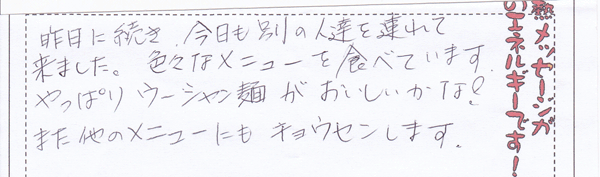 昨日に続き、今日も別の人達を連れて
来ました。色々なメニューを食べています。
やっぱりウーシャン麺がおいしいかな!
また他のメニューにもキョウセンします。
熱メッセージが
いエネルギーです!